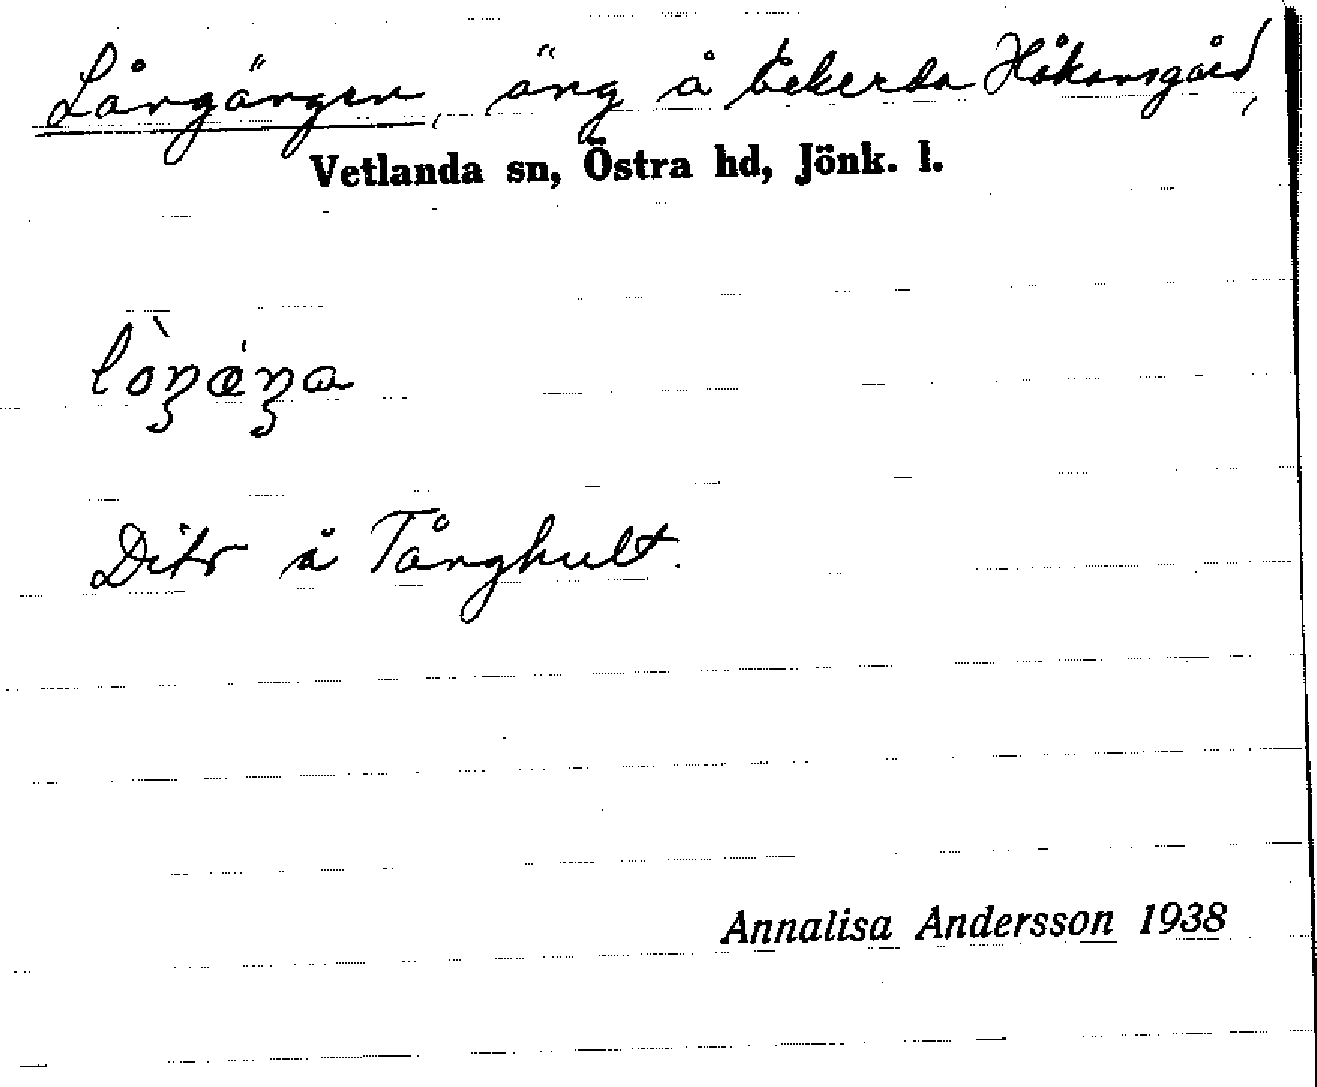 Långängen, äng å Bekerda Håkansgård,
Vetlanda sn, Östra hd, Jönk. l.
lòŋæ̀ŋa
Dito å Tånghult.
Annalisa Andersson 1938